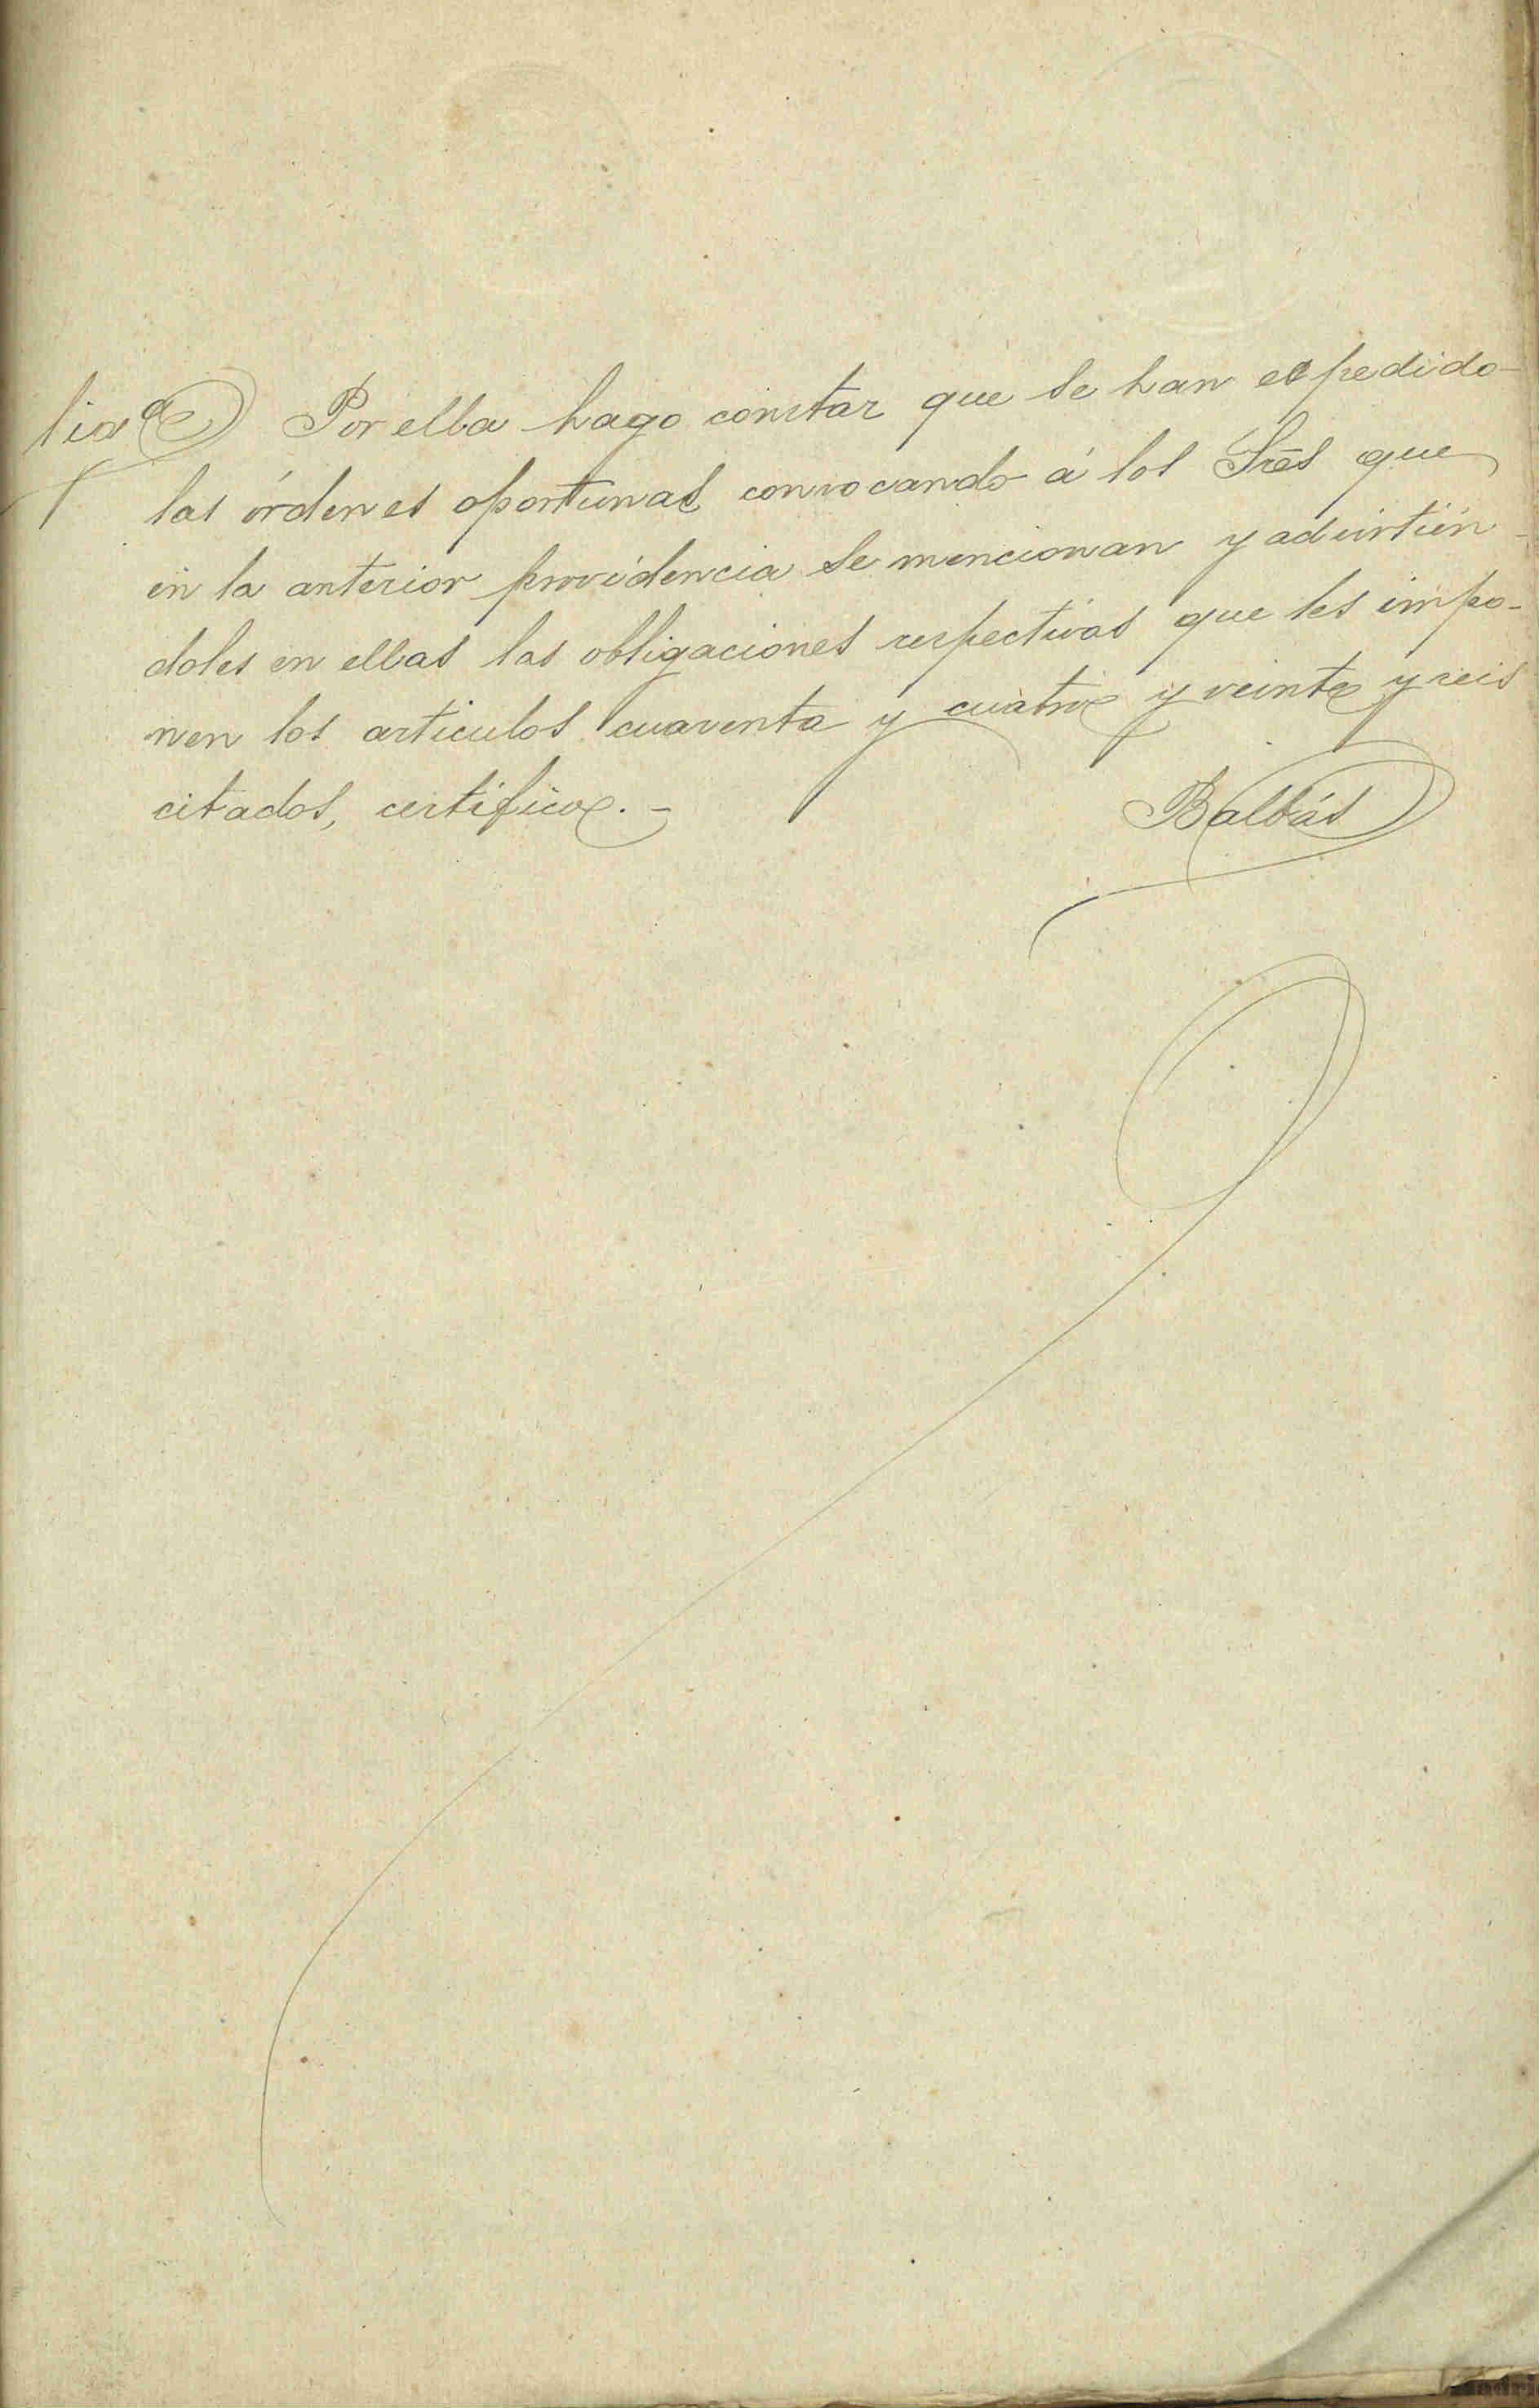 Por ella hago constar que se han expedido
las órdenes oportunas convocando á los Sres que
en la anterior providencia se mencionan y advirtien-
doles en ellas las obligaciones respectivas que les impo-
nen los articulos cuarenta y cuatro y veinte y seis
citados, certifico.-
Balbás